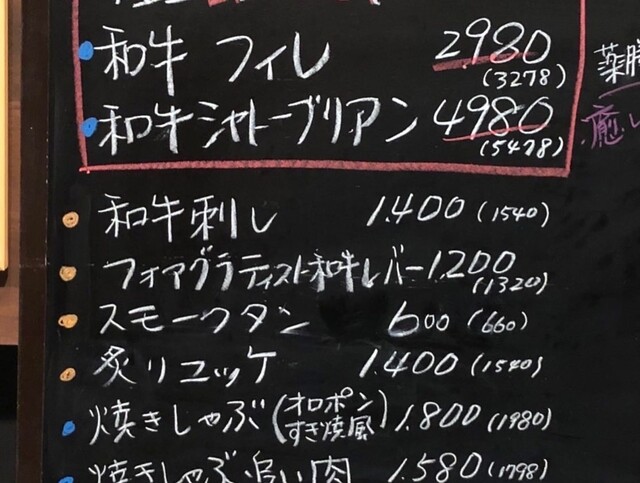 和牛 フィレ 2980 (3278)
和牛シャトーブリアン 4980 (5478)
和牛刺し 1.400 (1540)
フォアグラティスト和牛レバー 1.200 (1320)
スモークタン 600 (660)
炙りユッケ 1.400 (1540)
焼きしゃぶ (オロポン すき焼風) 1.800 (1980)
焼きしゃぶ追い肉 1.580 (1798)
薬膳
癒し